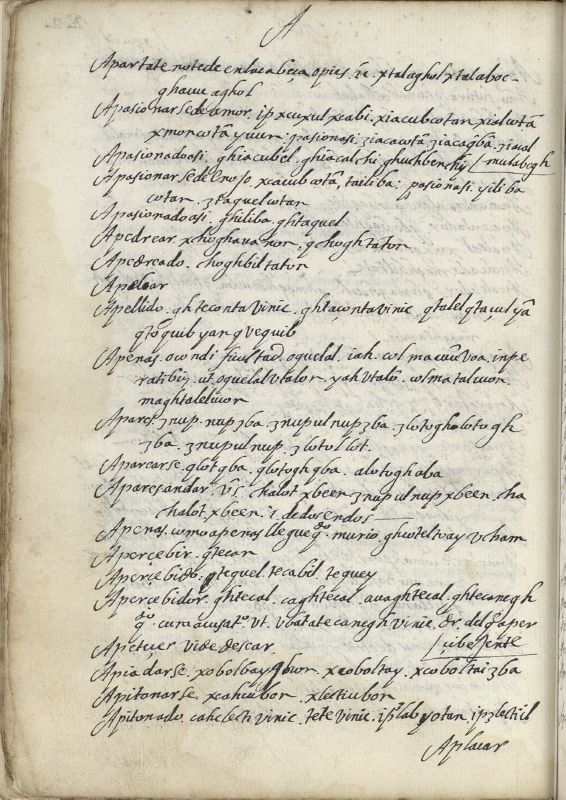 A
Apartate notede en la cabeça opies. &c. xtalaghol xtalaboc
ghauu aghol
Apasionarse de amor. ip xcuxul xcabi. xiacubcotan xialcotā
xmorcotā yuur. pasionasi ziacacotā. ziacaq̃ba. ziacal
Apasionado asi. ghiacubel. ghiacalchi, ghuchbenchij [mutabegh
Apasionarse de enojo. xcacubcotā, tailiba: pasionasi. yiliba
cotan. ztaquelcotan
Apasionado asi. ghiliba. ghtaquel
Apedrear. xchoghauanor. qchoghtator
Apedreado. choghbiltator
Apelear
Apellido. ghtecontavinic. ghtaçontavinic. qtalel qtaçul yā
qto quib yan qvequib
Apenas. o con dificultad. oquelal. iah. col ma cuuvoa. inpe
ratibi. ut oquelal vtalor. yah vtalō. col ma tal cuor.
maghtalelucor
Apares. znup. nup zba. znupul nup zba. zlotogholotogh
zba. znupulnup. zlotol lot.
Aparearse. qlotqba. qlotogh qba. alotoghaba
Apares andar. vs. chalot xbeen znupulnup xbeen. cha
chalot xbeen. i. de dos en dos
Apenas. como apenas llegue qdo murio. ghcoteltoay vcham
Aperçebir. qtecar
Aperçebido. ptequel. tecabil. teguey
Aperçebidor. ghtecal. caghtecal. auaghtecal. ghtecanegh
qdo. cum acusato. vt. voatatecanegh vinic. dr. del q aper
Apetecer vide desear. [cibe gente
Apiadarse. xobolbay qbuor. xcoboltay. xcoboltai zba
Apitonarse. xcahcubor. xlectiubor
Apitonado. cahclecti vinic. tete vinic. ip lab yotan. ip zlectiil
Aplacar